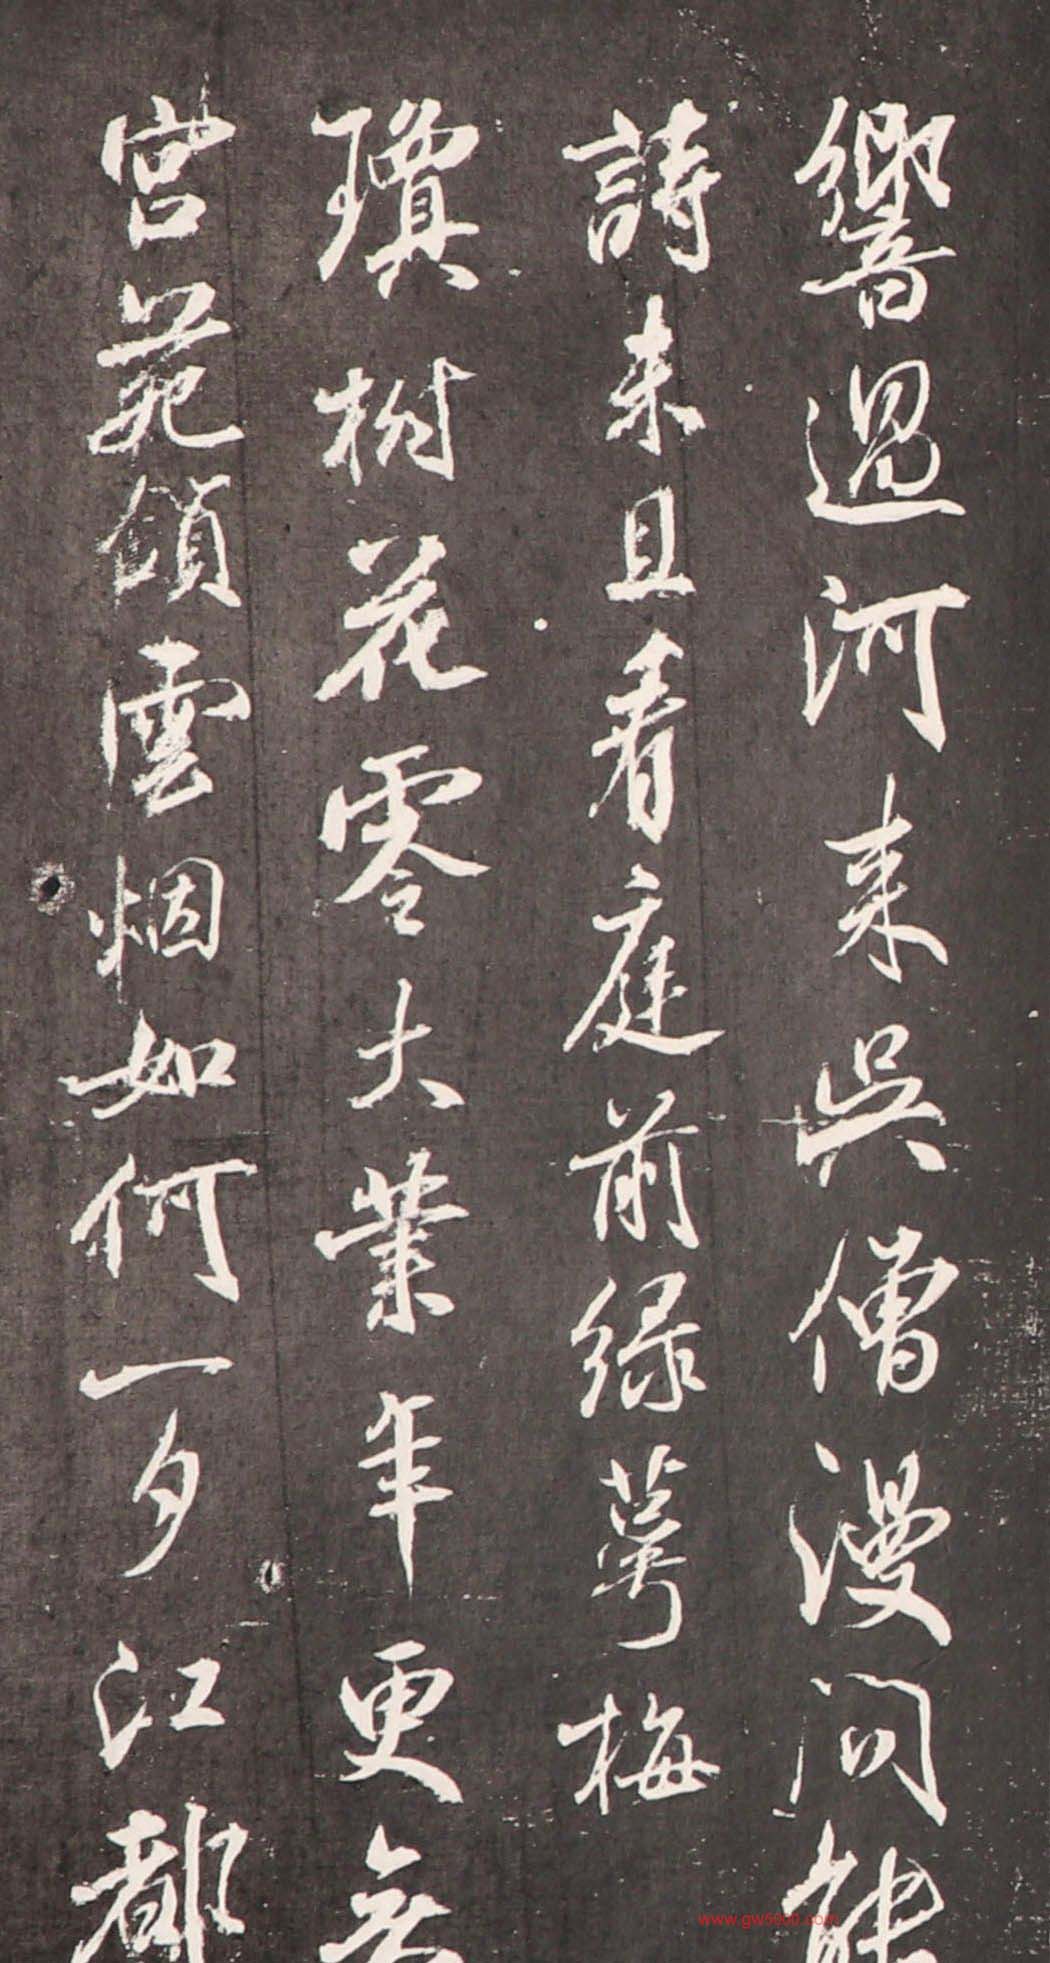 響過河来吳僧漫問能
詩未且看庭前緑萼梅
瓊樹花零大業年更無
宮苑鎖雲烟如何一夕江都
www.gw5000.com